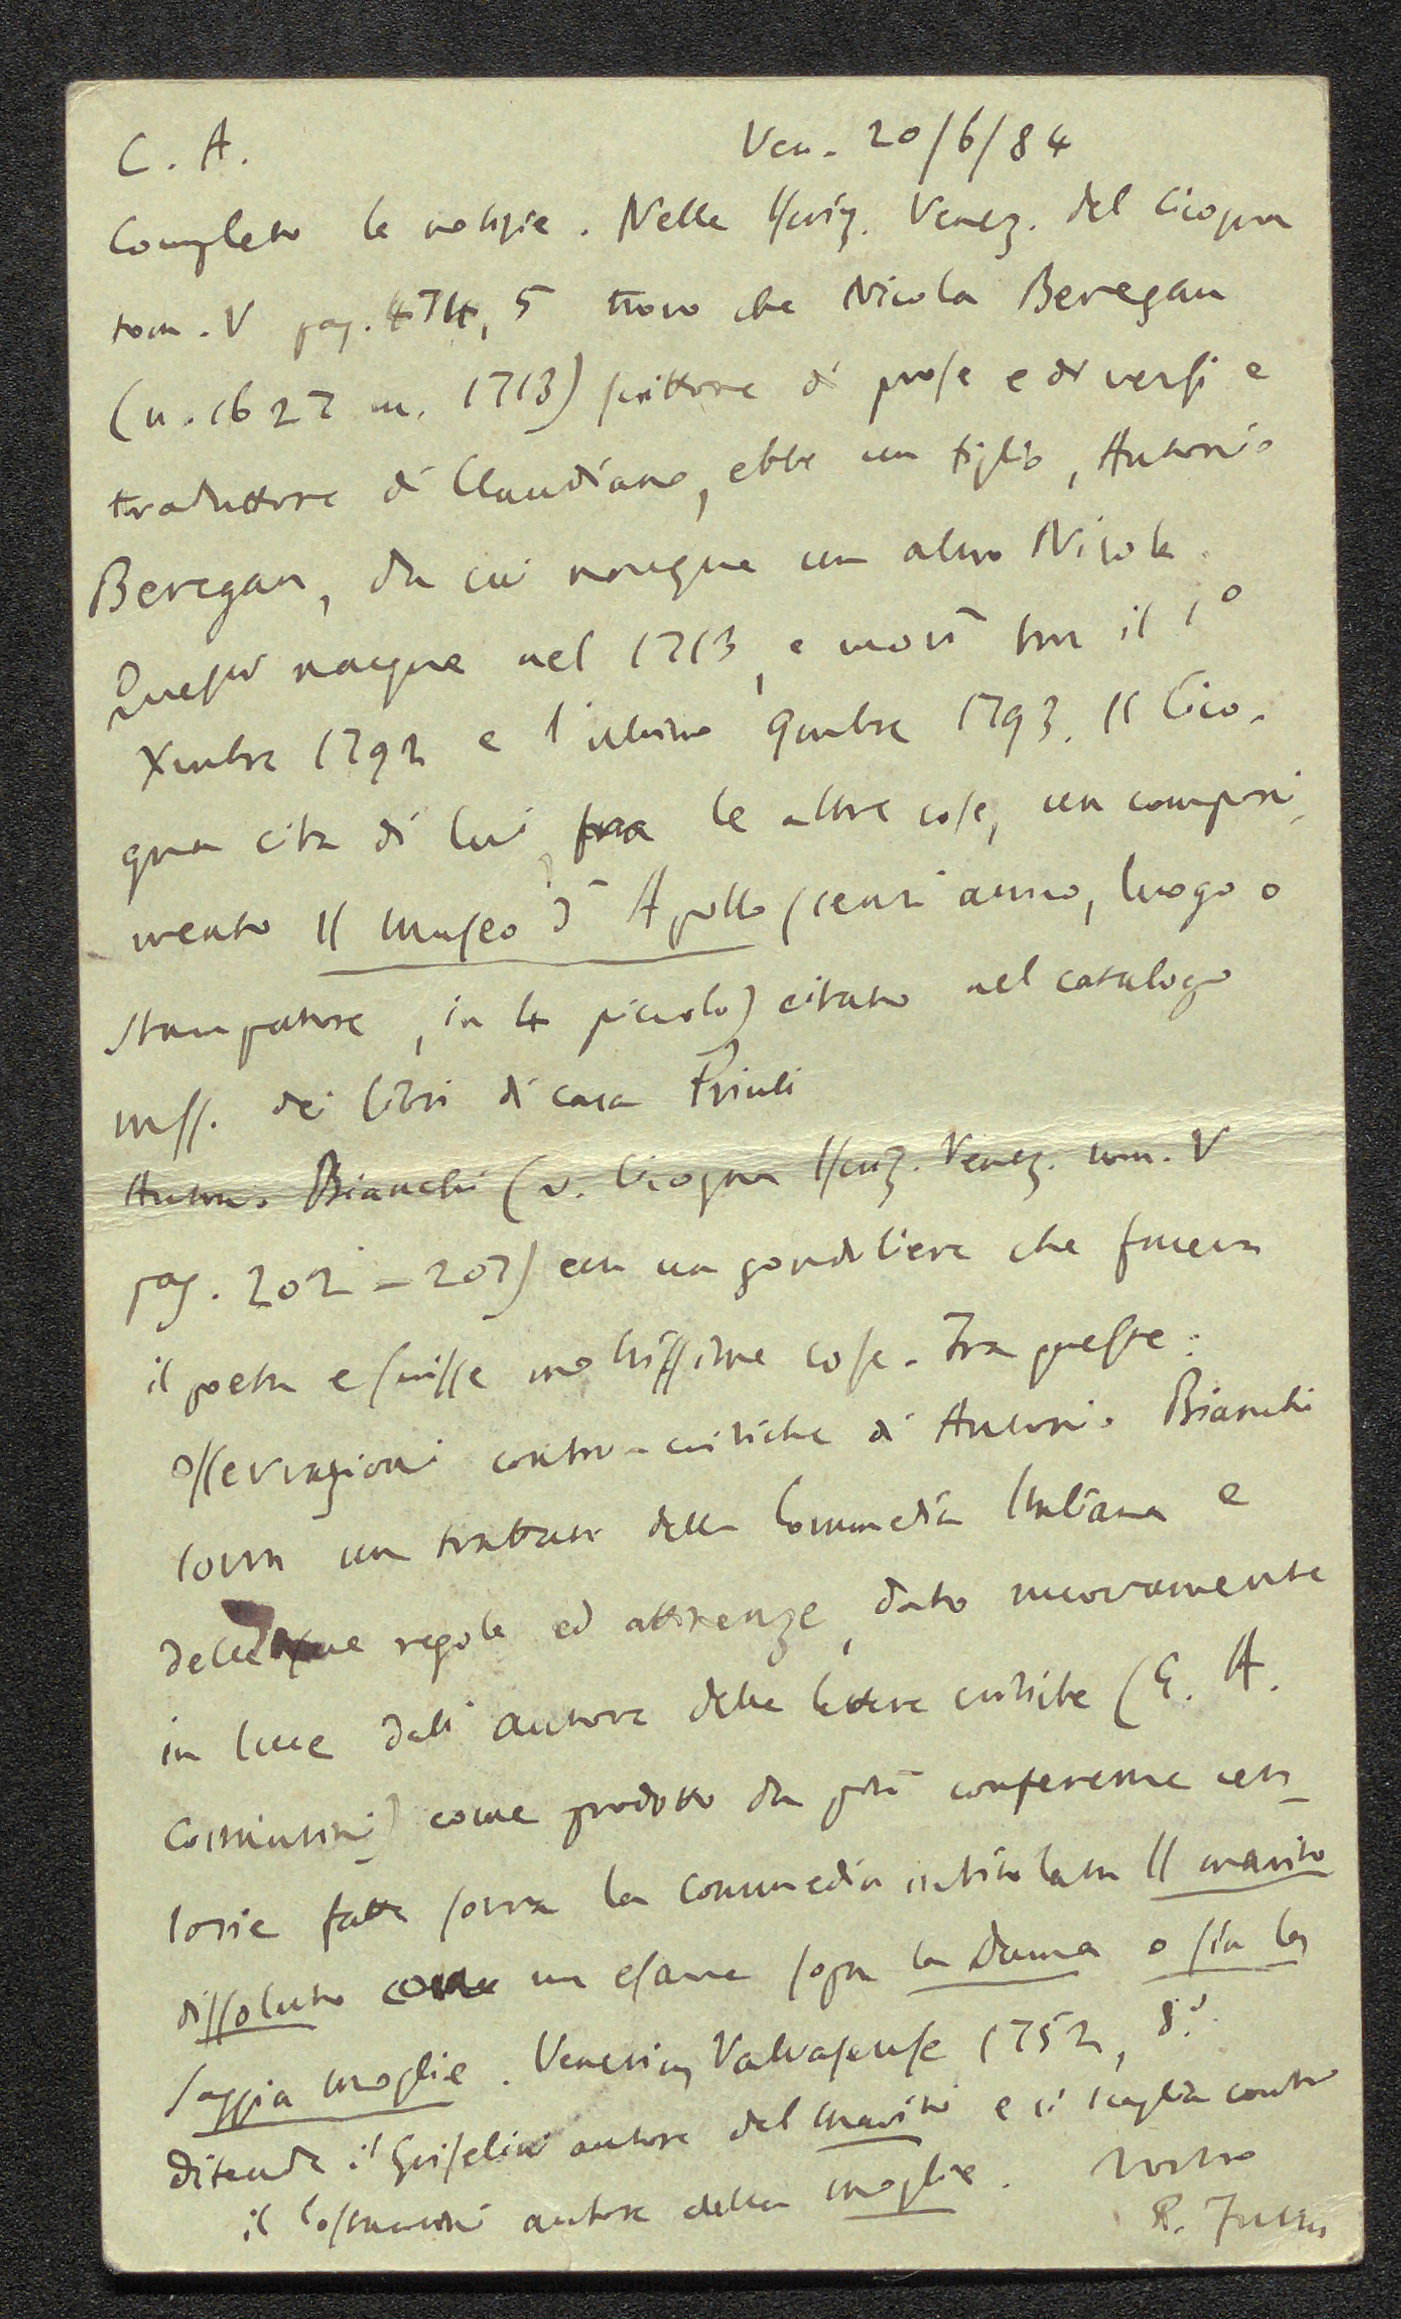 C. A. Ven. 20/6/84
Completo le notizie. Nelle Iscriz. Venez. del Cicogna
tom. V pag. 474, 5 trovo che Nicola Beregan
(n. 1627 m. 1713) scrittore di prose e di versi e
traduttore di Claudiano, ebbe un figlio, Antonio
Beregan, da cui nacque un altro Nicola.
Questi nacque nel 1713, e morì tra il 1º
Xmbre 1792 e l'ultimo 9mbre 1793. Il Cico-
gna cita di lui, fra le altre cose, un componi-
mento Il Museo d'Apollo (senz'anno, luogo o
stampatore, in 4 piccolo) citato nel catalogo
mss. dei libri di casa Priuli
Antonio Bianchi (v. Cicogna Iscriz. Venez. tom. V
pag. 202-207) era un gondoliere che faceva
il poeta e scrisse moltissime cose. Tra queste:
Osservazioni contro-critiche di Antonio Bianchi
sovra un trattato della Commedia Italiana e
delle sue regole ed attinenze, dato nuovamente
in luce dall'autore delle lettere critiche (G. A.
Costantini) come prodotto da più conferenze cen-
sorie fatte sovra la commedia intitolata Il marito
dissoluto come un esame sopra la Dama o sia la
saggia moglie. Venezia, Valvasense 1752, 8.º
Difende il Griselini autore del Marito e si scaglia contro
il Costantini autore della moglie. Vostro
R. Fulin